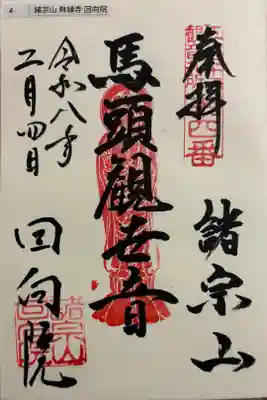 4 諸宗山 無縁寺 回向院
奉拝
四番
諸宗山
馬頭観世音
令和八年
二月四日
回向院